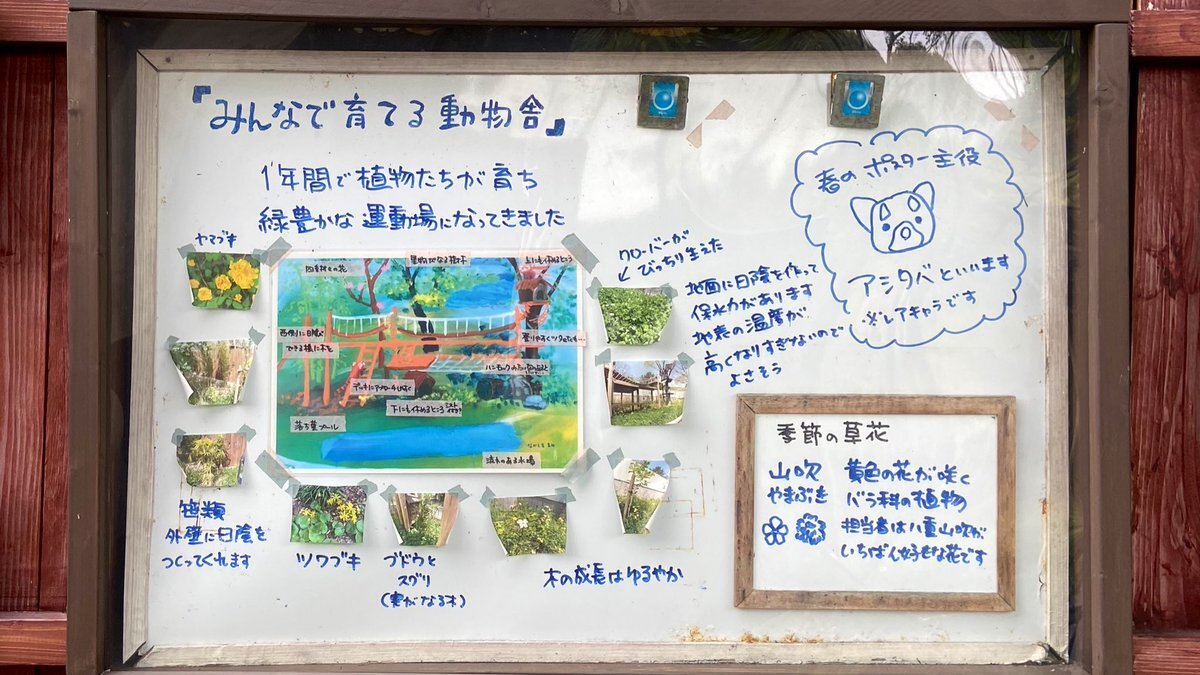 『みんなで育てる動物舎』
1年間で植物たちが育ち
緑豊かな運動場になってきました
春のポスター主役
アシタバといいます
※レアキャラです
ヤマブキ
クローバーが
びっちり生えた
地面に日陰を作って
保水力があります
地表の温度が
高くなりすぎないので
よさそう
四季折々の花
果物がなる樹木
上にも休めるところ
西側に日陰が
できる様に木を
デッキにアプローチしやすく
下にも休めるところ
落ち葉プール
流れのある水場
笹類
外壁に日陰を
つくってくれます
ツワブキ
ブドウと
スグリ
(実がなる木)
木の成長はゆるやか
季節の草花
山吹
やまぶき
黄色の花が咲く
バラ科の植物
担当者は八重山吹が
いちばん好きな花です